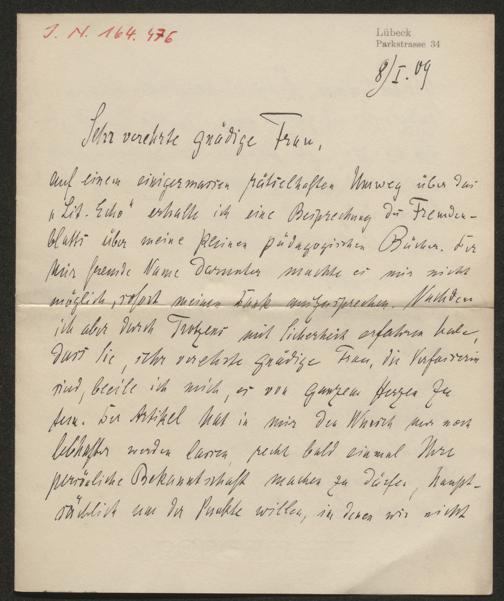 I. N. 164.476
Lübeck
Parkstrasse 34
8/I. 09
Sehr verehrte gnädige Frau,
auf einem einigermassen rätselhaften Umweg über das
"Lit. Echo" erhalte ich eine Besprechung des Fremden-
blatts über meine kleinen pädagogischen Bücher. Der
mir fremde Name darunter machte es mir nicht
möglich, sofort meinen Dank auszusprechen. Nachdem
ich aber durch mit Sicherheit erfahren habe,
dass Sie, sehr verehrte gnädige Frau, die Verfasserin
sind, beeile ich mich, es von ganzem Herzen zu
tun. Der Artikel hat in mir den Wunsch nur noch
lebhafter werden lassen, recht bald einmal Ihre
persönliche Bekanntschaft machen zu dürfen, haupt-
sächlich um der Punkte willen, in denen wir nicht